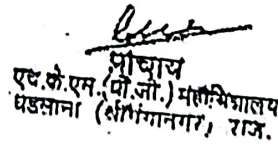 प्राचार्य
एच.के.एम.(पी.जी.) महाविद्यालय
घडसाना (श्रीगंगानगर) राज.